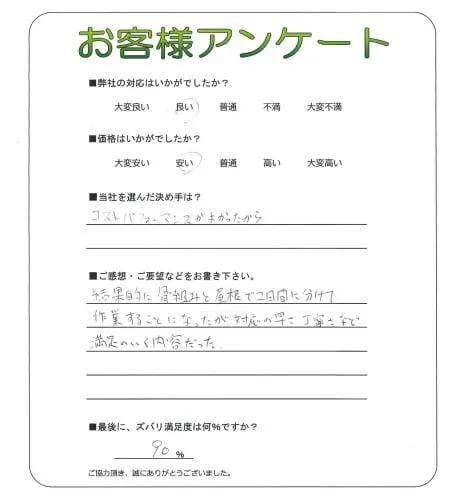 お客様アンケート
■弊社の対応はいかがでしたか？
大変良い 良い 普通 不満 大変不満
■価格はいかがでしたか？
大変安い 安い 普通 高い 大変高い
■当社を選んだ決め手は？
コストパフォーマンスがよかったから
■ご感想・ご要望などをお書き下さい。
結果的に骨組みと屋根で2日間に分けて
作業することになったが対応の早さ丁寧さなど
満足のいく内容だった。
■最後に、ズバリ満足度は何％ですか？
90 %
ご協力頂き、誠にありがとうございました。